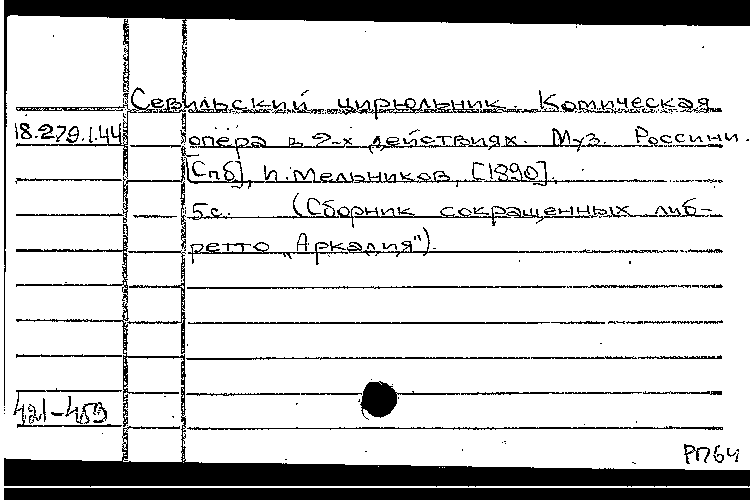 Севильский цирюльник. Комическая
18.279.1.44
опера в 2-х действиях. Муз. Россини.
[Спб], П. Мельников, [1890].
5с. (Сборник сокращенных либ-
ретто „Аркадия").
421-453
РП64